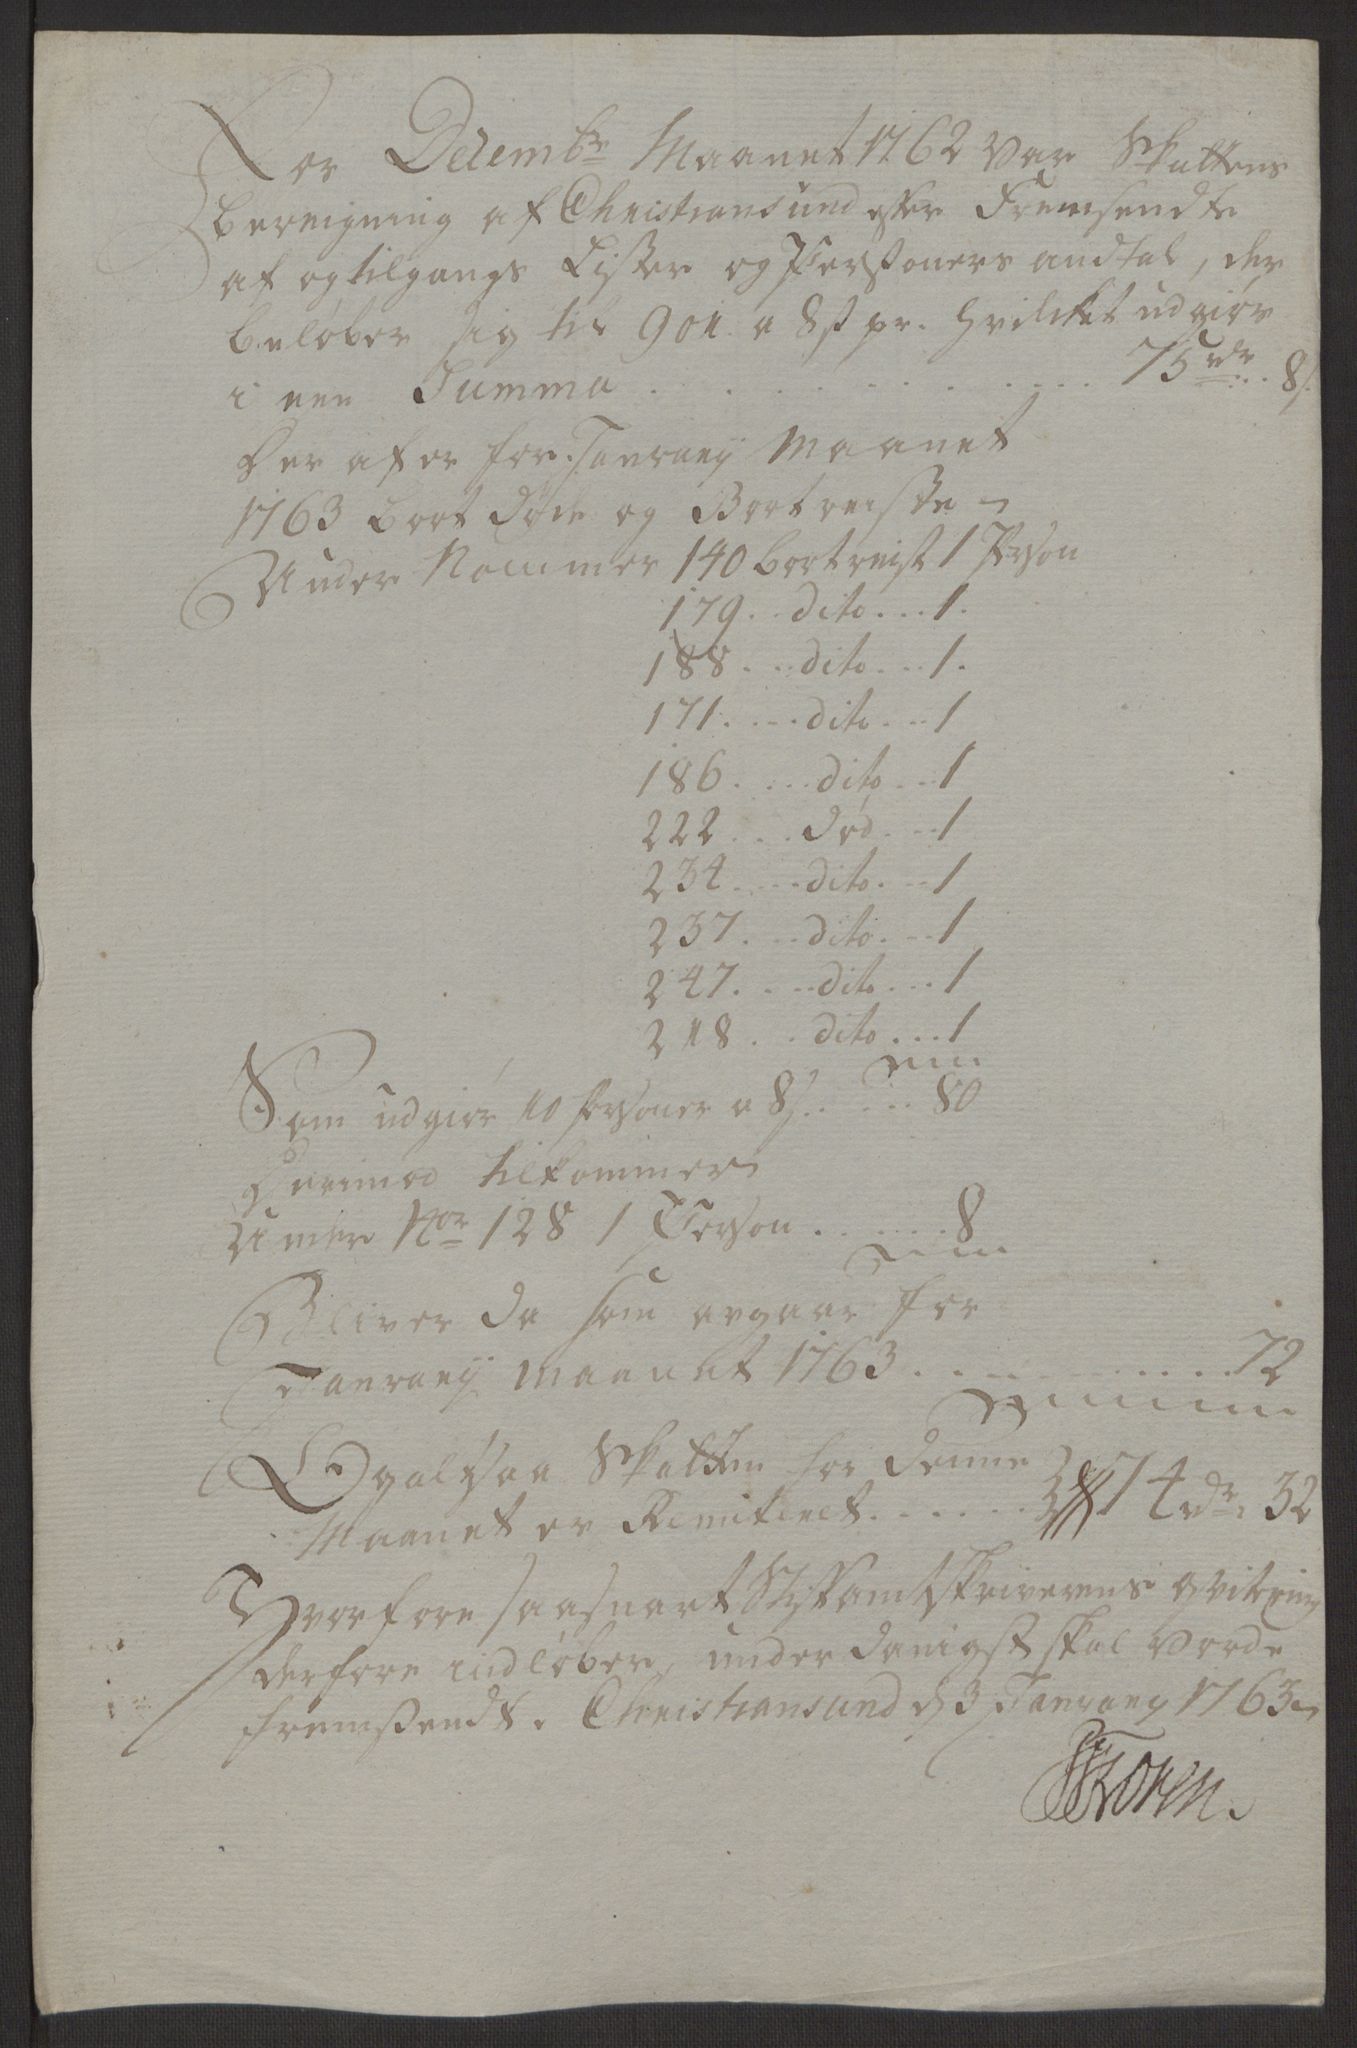 For Decembr Maanet 1762 var Skattens
bereigning af Christiansund efter Fremsendte
af og tilgangs Lister og Personers andtal, der
beløber sig til 901 a 8s pr. hvilcket udgiør
i een Summa . . . . . . . . . . 75 rdr . . 8s.
Her af er for Janrarij Maanet
1763 bort døde og Bortreiste
Under Nommer 140 bortreist 1 Person
179 . . dito . . . 1.
188 . . . dito . . . 1.
171 . . . . dito . . . 1
186 . . . . dito . . . 1
222 . . . død . . . 1
234 . . . . dito . . . 1
237 . . . dito . . . 1
247 . . . . dito . . . 1
248 . . dito . . . 1
Som udgiør 10 Personer a 8s . . . . . 80
Derimod tilkommer
Under Nor 128 1 Person . . . . . . 8
Bliver da som avgaar for
Janrarij maanet 1763 . . . . . . . . . 72
Ergo altsaa Skatten for denne
Maanet er Remiteret . . . . . . 74 rdr. 32
Hvorfore saasnart Stiftamtskriverens qvitering
derfore indløber, underdanigst skal vorde
fremsendt. Christiansund d 3 Janrarij 1763